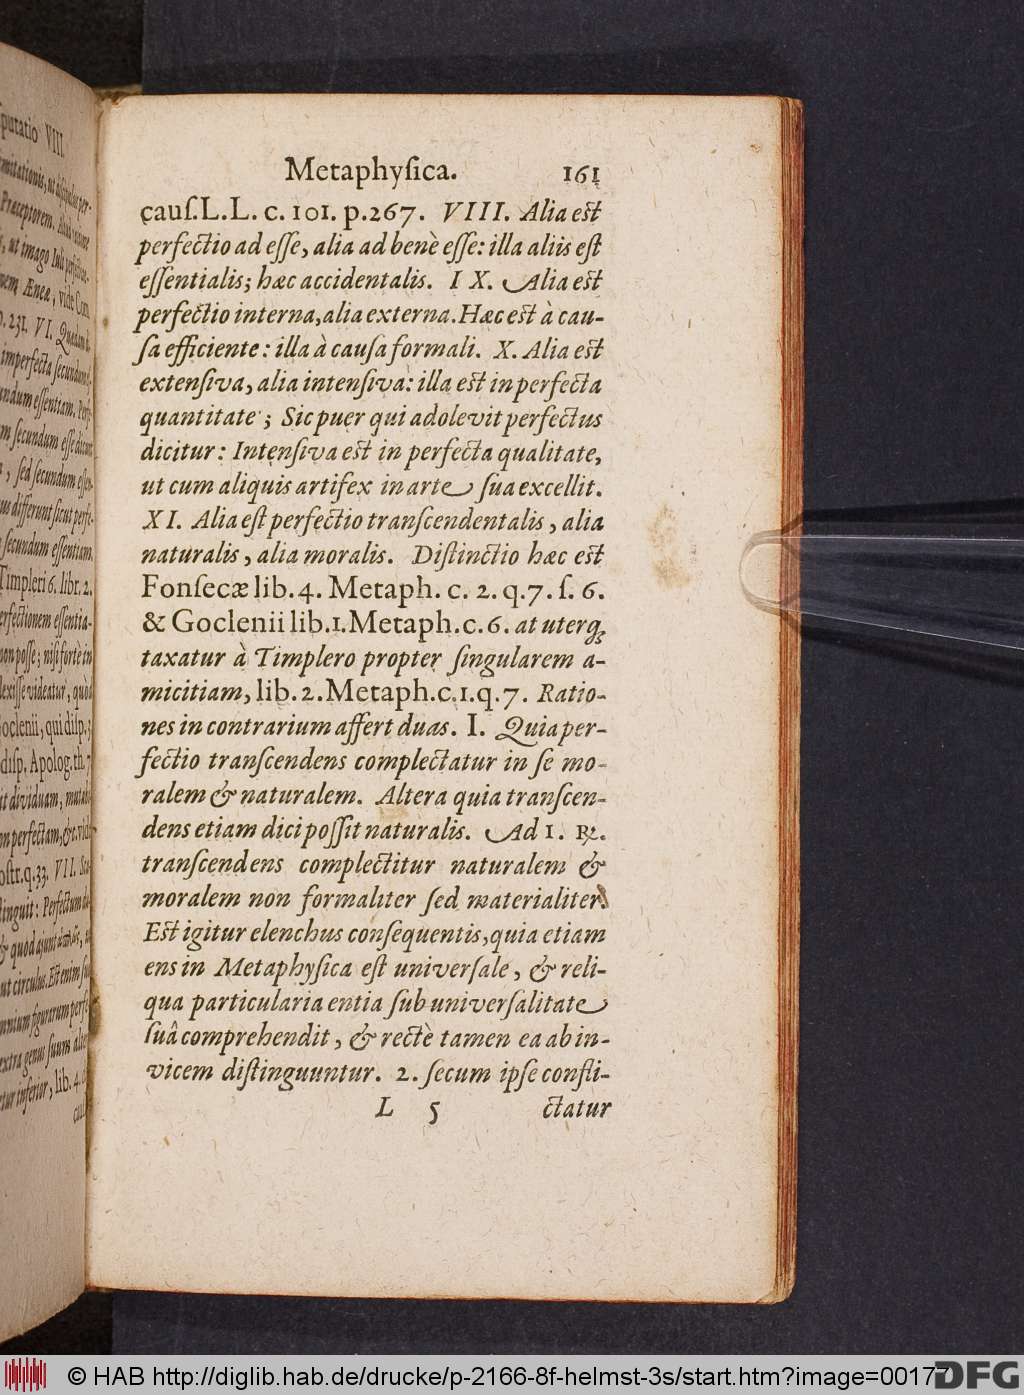 Metaphyſica. 161
cauſ.L.L. c. 101. p.267. VIII. Alia eſt
perfectio ad eſſe, alia ad benè eſſe: illa aliis eſt
eſſentialis; hæc accidentalis. IX. Alia eſt
perfectio interna, alia externa. Hæc est à cau-
ſa efficiente: illa à cauſa formali. X. Alia eſt
extenſiva, alia intenſiva: illa est in perfecta
quantitate; Sic puer qui adolevit perfectus
dicitur: Intenſiva eſt in perfecta qualitate,
ut cum aliquis artifex in arte ſua excellit.
XI. Alia eſt perfectio tranſcendentalis, alia
naturalis, alia moralis. Diſtinctio hæc eſt
Fonſecæ lib. 4. Metaph. c. 2. q. 7. ſ. 6.
& Goclenii lib.1. Metaph. c. 6. at uterq;
taxatur à Timplero propter ſingularem a-
micitiam, lib. 2. Metaph. c.1. q. 7. Ratio-
nes in contrarium affert duas. I. Quia per-
fectio tranſcendens complectatur in ſe mo-
ralem & naturalem. Altera quia tranſcen-
dens etiam dici poſſit naturalis. Ad 1. ℞.
tranſcendens complectitur naturalem &
moralem non formaliter ſed materialiter.
Eſt igitur elenchus conſequentis, quia etiam
ens in Metaphyſica eſt univerſale, & reli-
qua particularia entia ſub univerſalitate
ſuâ comprehendit, & rectè tamen ea ab in-
vicem diſtinguuntur. 2. ſecum ipſe confli-
L 5 ctatur
© HAB http://diglib.hab.de/drucke/p-2166-8f-helmst-3s/start.htm?image=00177
DFG